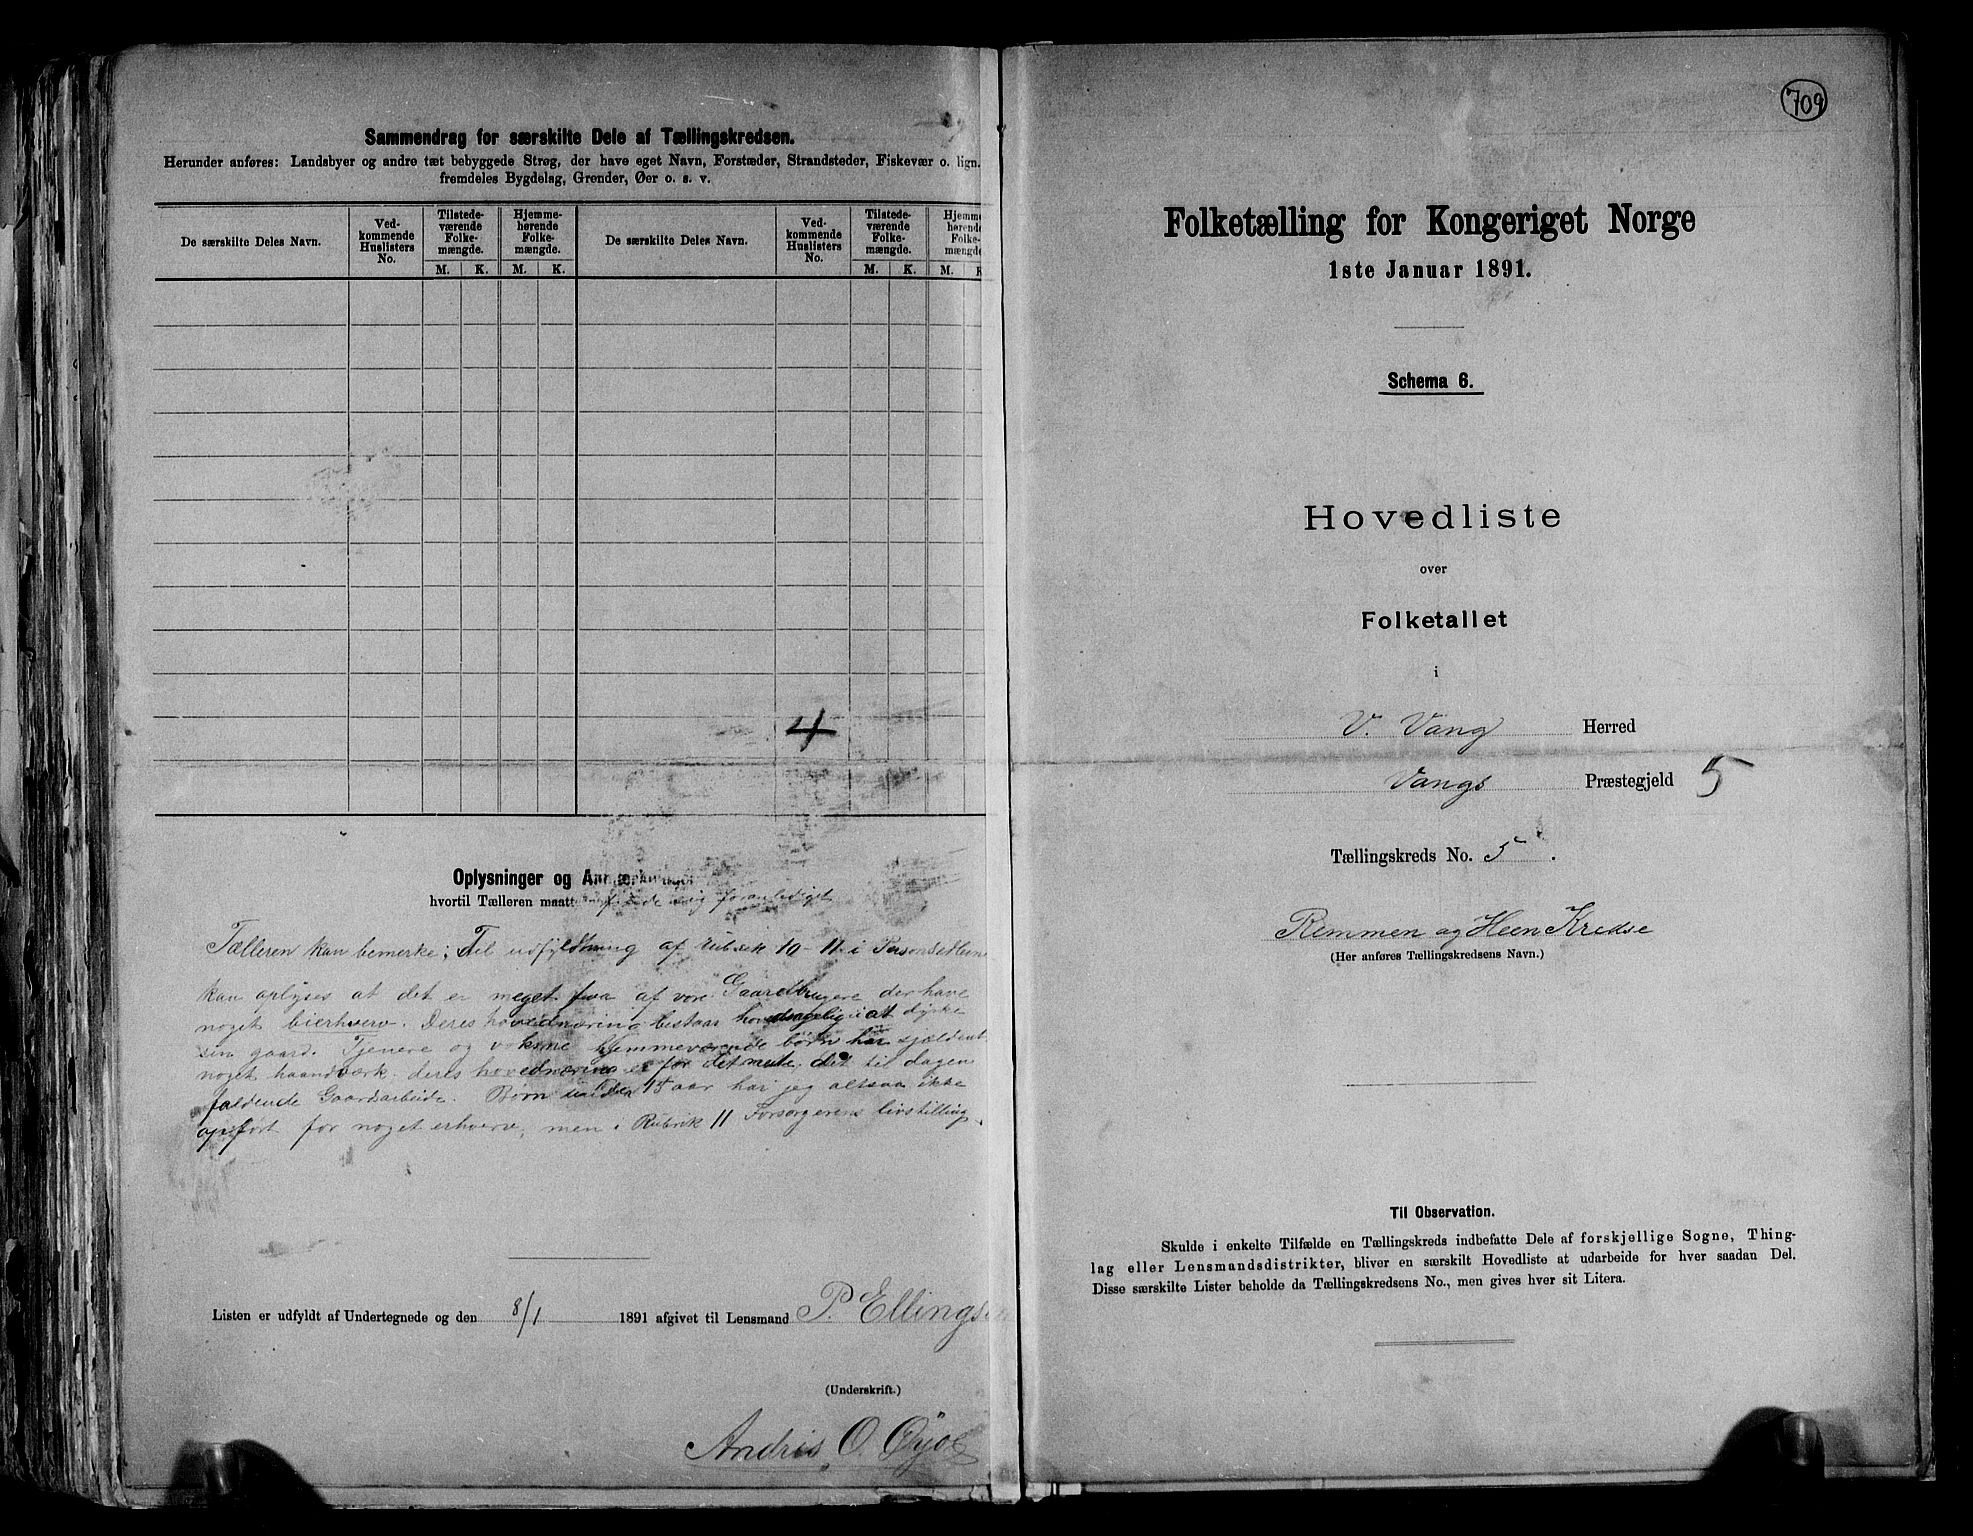 Sammendrag for særskilte Dele af Tællingskredsen.
Herunder anføres: Landsbyer og andre tæt bebyggede Strøg, der have eget Navn, Forstæder, Strandsteder, Fiskevær o. lign.
fremdeles Bygdelag, Grender, Øer o. s. v.
De særskilte Deles Navn.
Ved-
kommende
Huslisters
No.
Tilstede-
værende
Folke-
mængde.
M. K.
Hjemme-
hørende
Folke-
mængde.
M. K.
De særskilte Deles Navn.
Ved-
kommende
Huslisters
No.
Tilstede-
værende
Folke-
mængde.
M. K.
Hjemme
hørende
Folke-
mængde
M. K
4
Oplysninger og
hvortil Tælleren maatte finde sig foranlediget
Tælleren kan bemerke; Til udfyldning af rubrik 10-11 i
kan oplyses at det er meget faa af vore Gaardbrugere der have
noget bierhverv. Deres hovednæring bestaar hovedsagelig i at dyrke
sin gaard. Tjenere og voksne hjemmeværende børn har sjeldent
noget haandværk. deres hovednæring er for det meste det til dagen
faldende Gaardarbeide. Børn under 15 aar har jeg altsaa ikke
opført for noget erhverv, men i Rubrik 11 Forsørgerens livstilling.
Listen er udfyldt af Undertegnede og den 8/1 1891 afgivet til Lensmand P. Ellingsen
(Underskrift.)
Andris O.
709
Folketælling for Kongeriget Norge
1ste Januar 1891.
Schema 6.
Hovedliste
over
Folketallet
i
V. Vang Herred
Vangs Præstegjeld 5
Tællingskreds No. 5.
Remmen og Heen Kredse
(Her anføres Tællingskredsens Navn.)
Til Observation.
Skulde i enkelte Tilfælde en Tællingskreds indbefatte Dele af forskjellige Sogne, Thing-
lag eller Lensmandsdistrikter, bliver en særskilt Hovedliste at udarbeide for hver saadan Del.
Disse særskilte Lister beholde da Tællingskredsens No., men gives hver sit Litera.